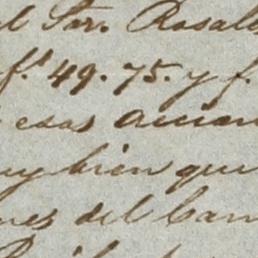 l Sor. Rosal
f.s 49. 75. y f.
esas accion
uy bien que
nes del Cam